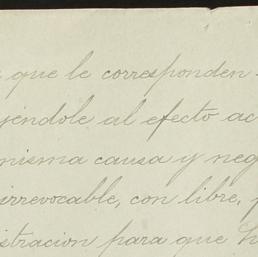 que le corresponden
éndole al efecto
misma causa y neg
irrevocable, con libre,
istracion para que